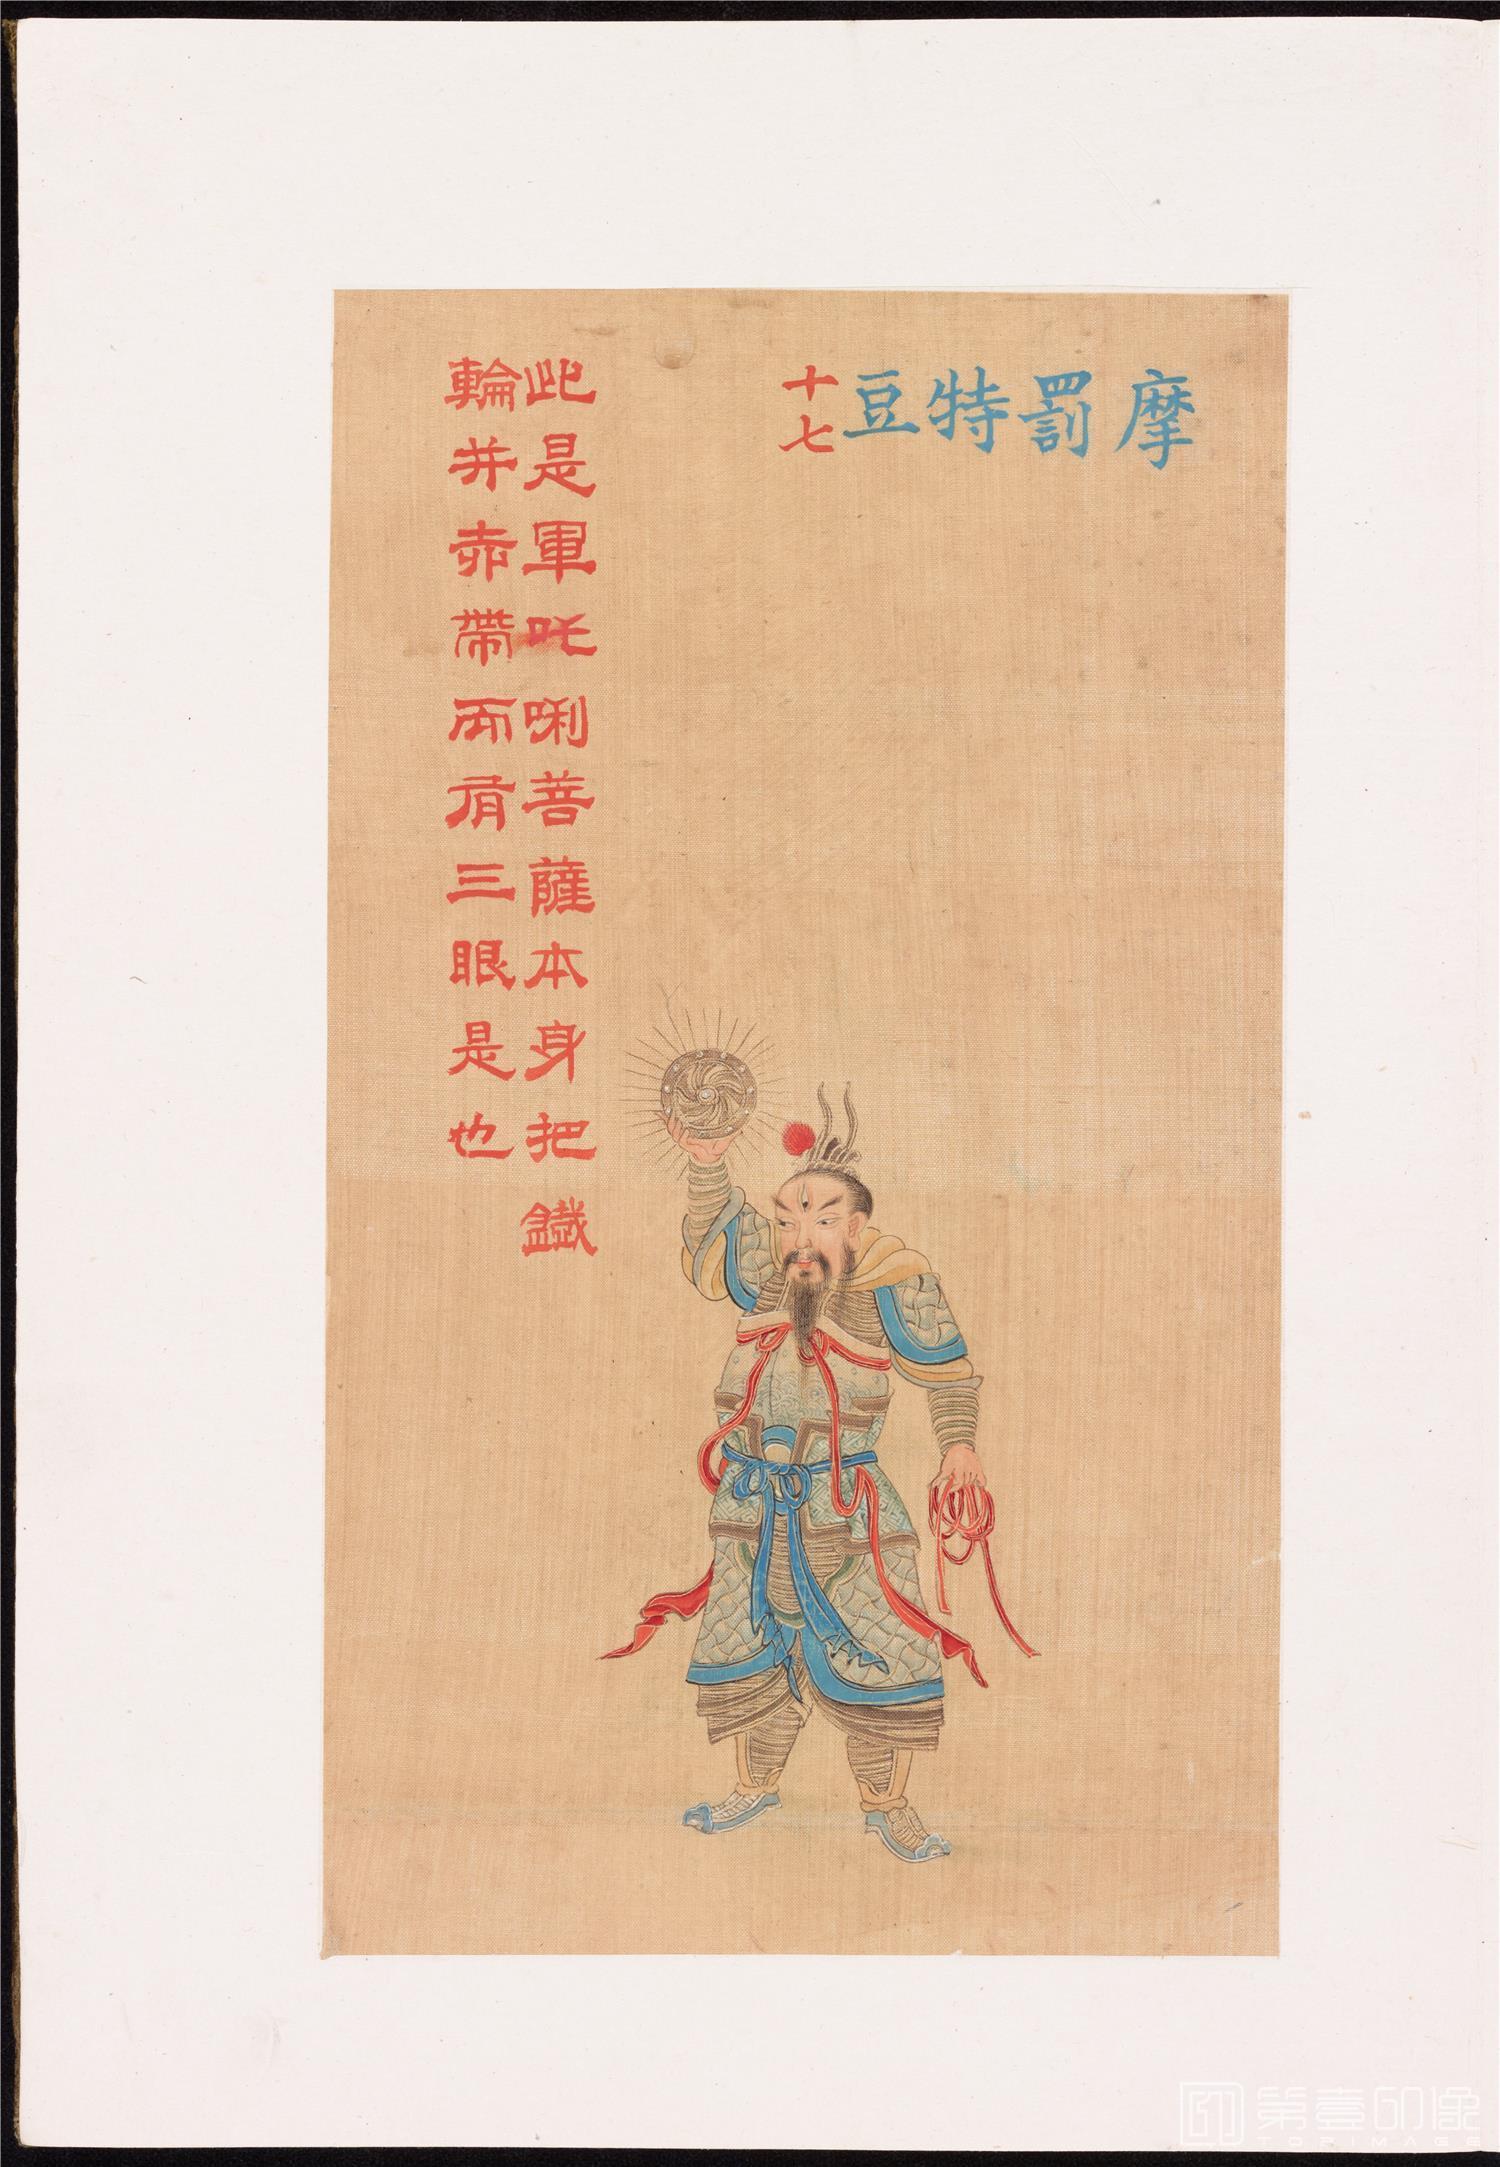 摩罰特豆
十七
此是軍吒唎菩薩本身把鐵
輪并赤帶而有三眼是也
第壹印像
TOPIMAGE